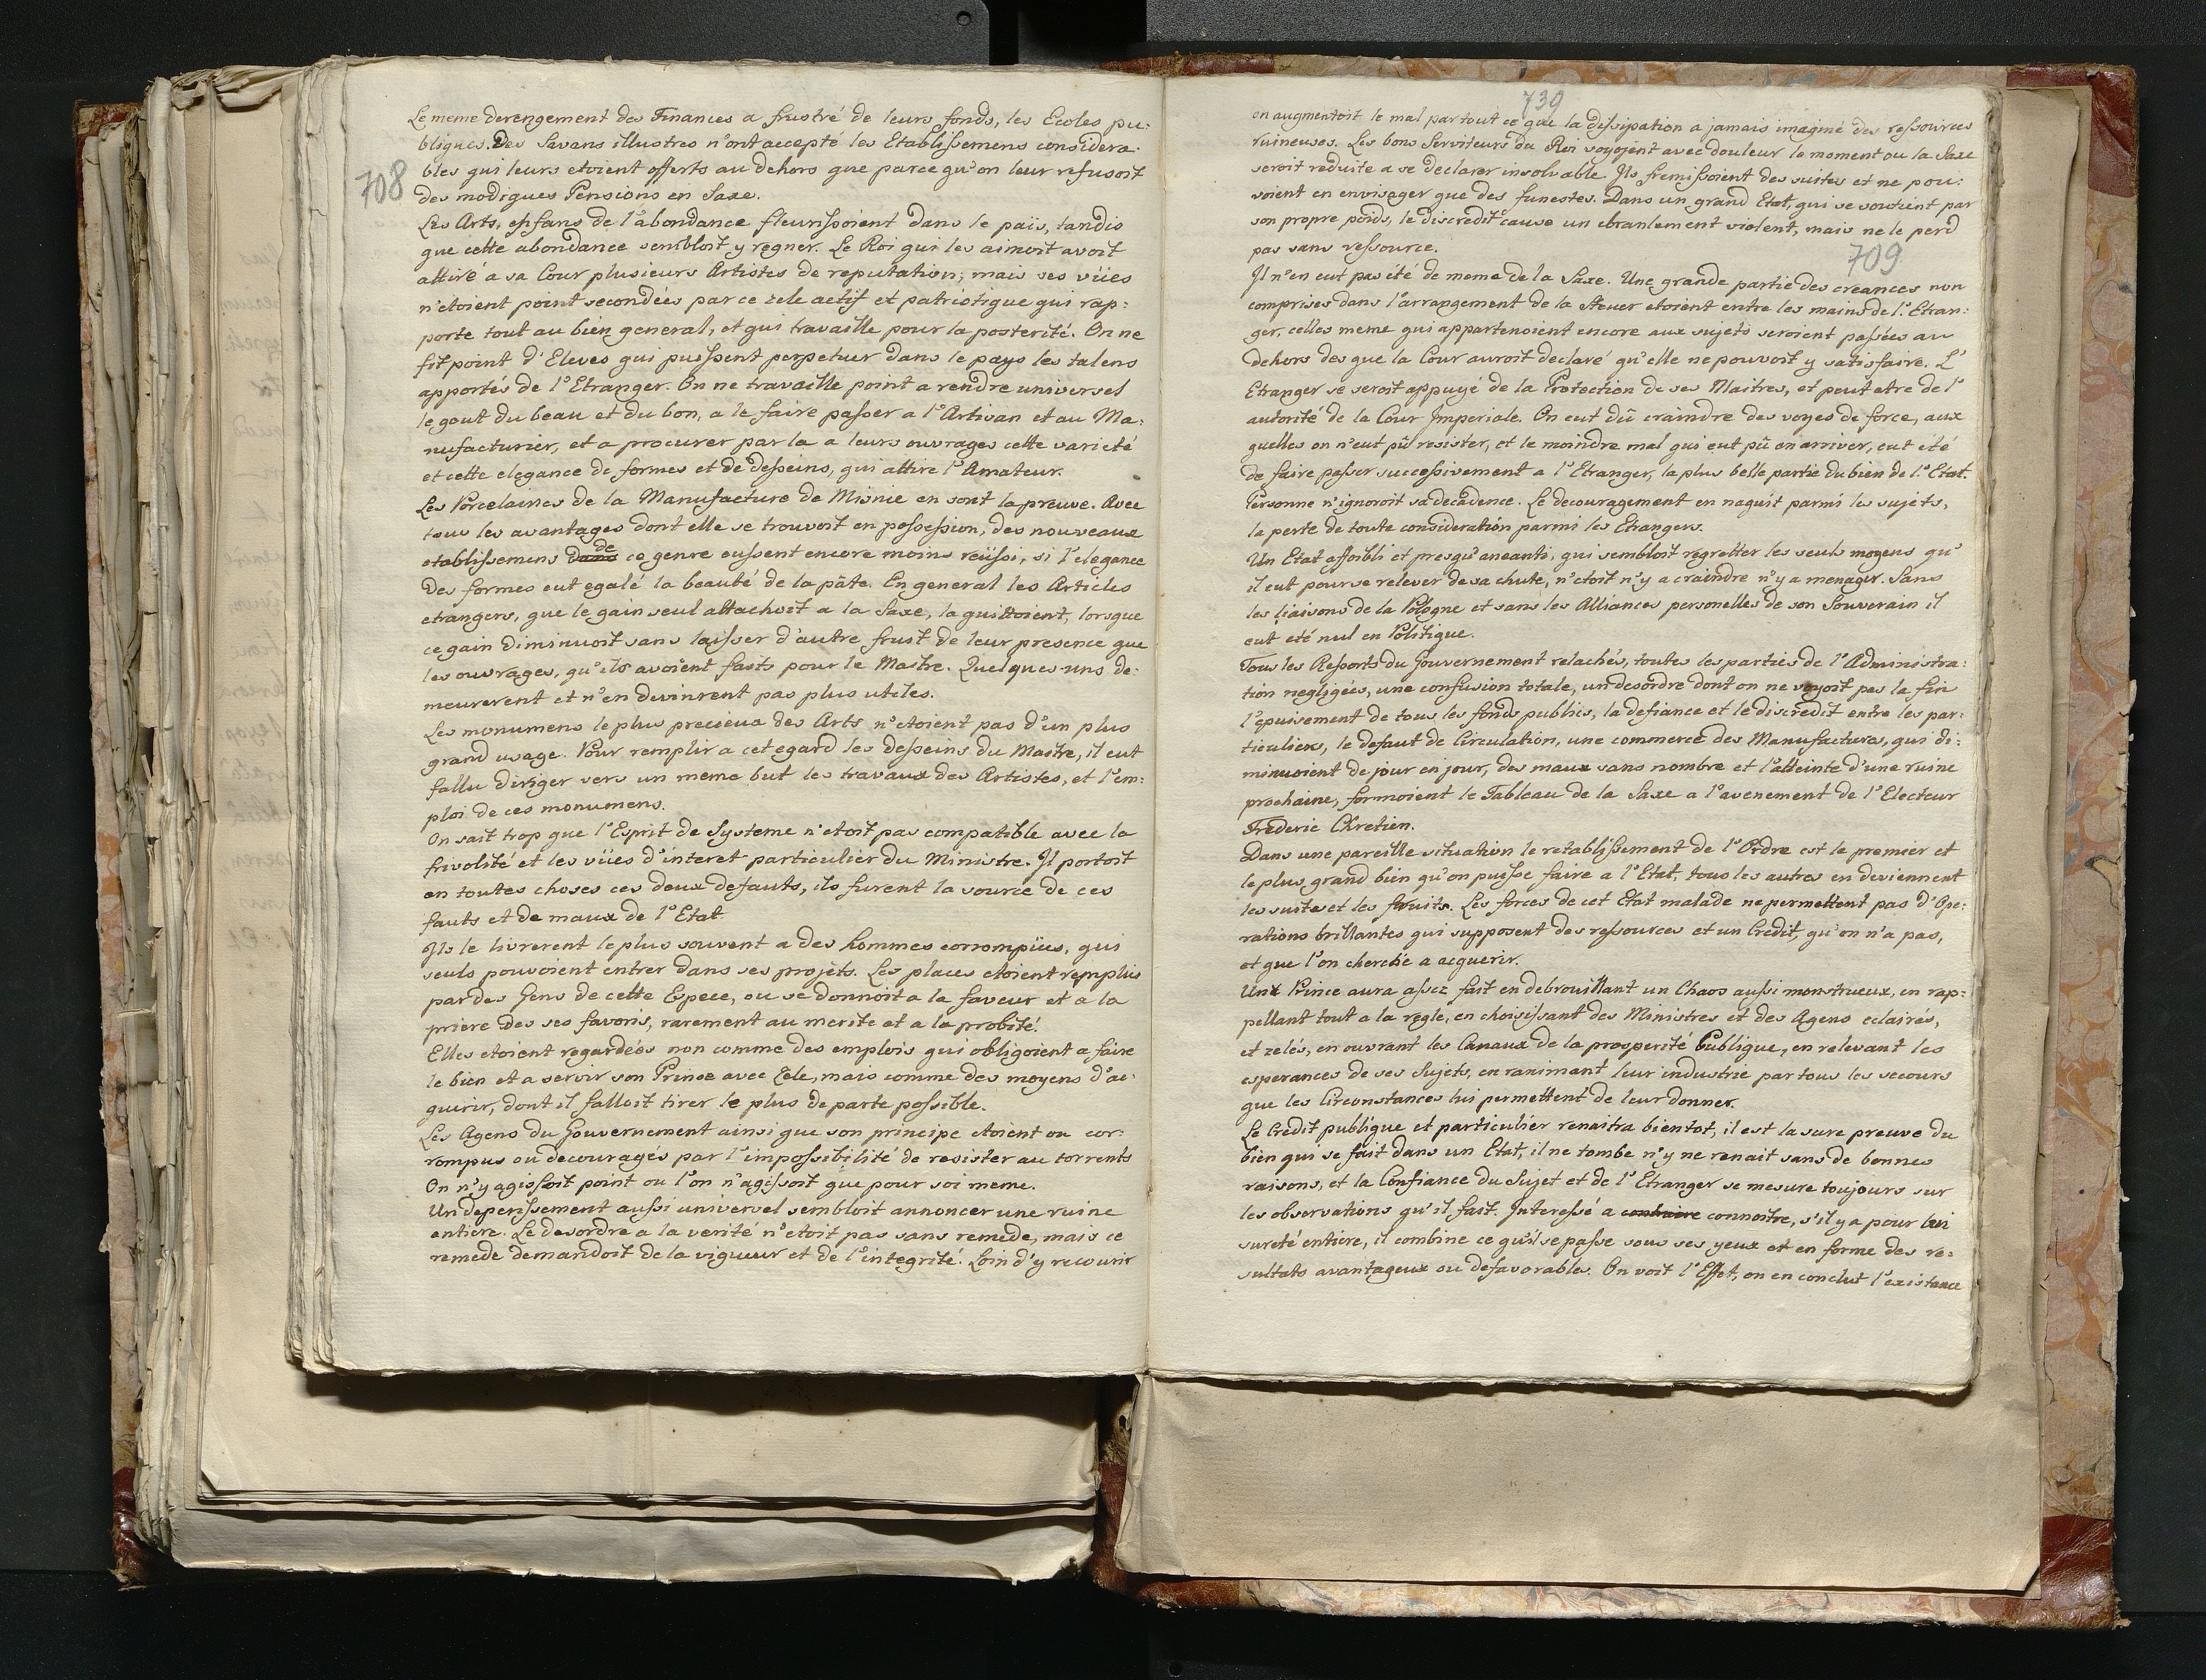 Le meme derengement des Finances a frustré de leurs fonds, les Ecoles pu:
bliques. Des Savans illustres n'ont accepté les Etablissemens considera:
bles qui leurs etoient offerts au dehors que parcequ'on leur refusoit
708
des modiques Pensions en Saxe.
Les Arts, enfans de l'abondance fleurissoient dans le païs, tandis
que cette abondance sembloit y regner. Le Roi qui les aimoit avoit
attiré a sa Cour plusieurs Artistes de reputation; mais ses vües
n'etoient point secondées par ce zele actif et patriotique qui rap:
porte tout au bien general, et qui travaille pour la posterité. On ne
fit point d'Eleves qui puissent perpetuer dans le pays les talens
apportés de l'Etranger. On ne travaille point a rendre universel
le gout du beau et du bon, a le faire passer a l'Artisan et au Ma:
nufacturier, et a procurer par la a leurs ouvrages cette varieté
et cette elegance de formes et de desseins, qui attire l'Amateur.
Les Porcelaines de la Manufacture de Misnie en sont la preuve. Avec
tous les avantages dont elle se trouvoit en possession, des nouveaux
etablissemens dans de ce genre eussent encore moins reüssi, si l'elegance
des formes eut egalé la beauté de la pâte. En general les Articles
etrangers, que le gain seul attachoit a la Saxe, la quittoient, lorsque
ce gain diminuoit sans laisser d'autre fruit de leur presence que
les ouvrages, qu'ils avoient faits pour le Maitre. Quelques-uns de:
meurerent et n'en devinrent pas plus utiles.
Les monumens le plus precieux des Arts n'etoient pas d'un plus
grand usage. Pour remplir a cet egard les desseins du Maitre, il eut
fallu diriger vers un meme but les travaux des Artistes, et l'em:
ploi de ces monumens.
On sait trop que l'Esprit de Systeme n'etoit pas compatible avec la
frivolité et les vües d'interet particulier du Ministre. Il portoit
en toutes choses ces deux defauts, ils furent la source de ces
fauts et de maux de l'Etat
Ils le livrerent le plus souvent a des hommes corrompües, qui
seuls pouvoient entrer dans ses projets. Les places etoient remplis
par des Gens de cette Espece, ou se donnoit a la faveur et a la
priere des ses favoris, rarement au merite et a la probité.
Elles etoient regardées non comme des emplois qui obligoient a faire
le bien et a servir son Prince avec Zele, mais comme des moyens d'ac:
querir, dont il falloit tirer le plus de parte possible.
Les Agens du Gouvernement ainsi que son principe etoient ou cor:
rompus ou decouragés par l'impossibilité de resister au torrents
On n'y agissoit point ou l'on n'agissoit que pour soi meme.
Un deperissement aussi universel sembloit annoncer une ruine
entiere. Le desordre a la verité n'etoit pas sans remede, mais ce
remede demandoit de la vigueur et de l'integrité. Loin d'y recourir
739
on augmentoit le mal par tout ce que la dissipation a jamais imaginé des ressources
ruineuses. Les bons Serviteurs du Roi voyoient avec douleur le moment ou la Saxe
seroit reduite a se declarer insolvable. Ils fremissoient des suites et ne pou:
voient en envisager que des funestes. Dans un grand Etat, qui se soutient par
son propre poids, le discredit cause un ebranlement violent, mais ne le perd
pas sans ressource.
709
Il n'en eut pas été de meme de la Saxe. Une grande partie des creances non
comprises dans l'arrangement de la Steuer etoient entre les mains de l'Etran:
ger, celles meme qui appartenoient encore aux sujets seroient passées au
dehors des que la Cour auroit declaré qu'elle ne pouvoit y satisfaire. L'
Etranger se seroit appuyé de la Protection de ses Maitres, et peut etre de l'
autorité de la Cour Imperiale. On eut dû craindre des voyes de force, aux
quelles on n'eut pû resister, et le moindre mal qui eut pû en arriver, eut été
de faire passer successivement a l'Etranger, la plus belle partie du bien de l'Etat.
Personne n'ignoroit sa decadence. Le decouragement en naquit parmi les sujets,
la perte de toute consideration parmi les Etrangers.
Un Etat affoibli et presqu'aneanti, qui sembloit regretter les seuls moyens qu'
il eut pour se relever de sa chute, n'etoit n'y a craindre n'y a menager. Sans
les liaisons de la Pologne et sans les Alliances personelles de son Souverain il
eut eté nul en Politique.
Tous les Ressorts du Gouvernement relachés, toutes les parties de l'Administra:
tion negligées, une confusion totale, un desordre dont on ne voyoit pas la fin
l'epuisement de tous les fonds publics, la defiance et le discredit entre les par:
ticuliers, le defaut de Circulation, une commerce des Manufactures, qui di:
minuoient de jour en jour, des maux sans nombre et l'atteinte d'une ruine
prochaine, formoient le Tableau de la Saxe a l'avenement de l'Electeur
Frederic Chretien.
Dans une pareille situation le retablissement de l'Ordre est le premier et
le plus grand bien qu'on puisse faire a l'Etat, tous les autres en deviennent
les suites et les fruits. Les forces de cet Etat malade ne permettent pas d'Ope:
rations brillantes qui supposent des ressources et un Credit, qu'on n'a pas,
et que l'on cherche a acquerir.
Un Prince aura assez fait en debrouillant un Chaos aussi monstrueux, en rap:
pellant tout a la regle, en choisissant des Ministres et des Agens eclairés,
et zelés, en ouvrant les Canaux de la prosperité publique, en relevant les
esperances de ses Sujets, en ranimant leur industrie par tous les secours
que les Circonstances lui permettent de leur donner.
Le Credit publique et particulier renaitra bientot, il est la sure preuve du
bien qui se fait dans un Etat, il ne tombe n'y ne renait sans de bonnes
raisons, et la Confiance du Sujet et de l'Etranger se mesure toujours sur
les observations qu'il fait. Interessé a connoitre, s'il y a pour lui
sureté entiere, il combine ce qu'il se passe sous ses yeux et en forme des re:
sultats avantageux ou defavorables. On voit l'Effet, on en conclut l'existance